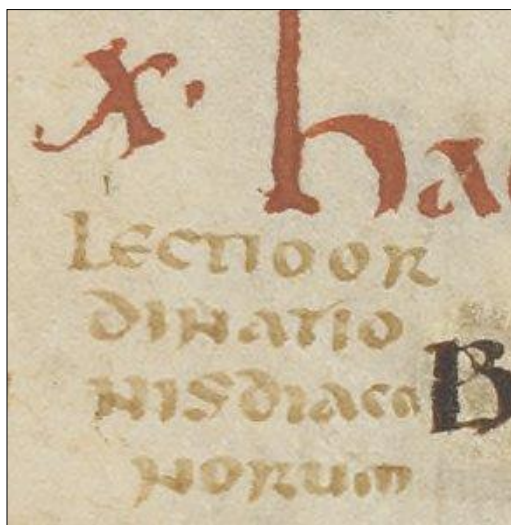 x. hae
Lectioor
dinatio
nisdiaco
norum
B